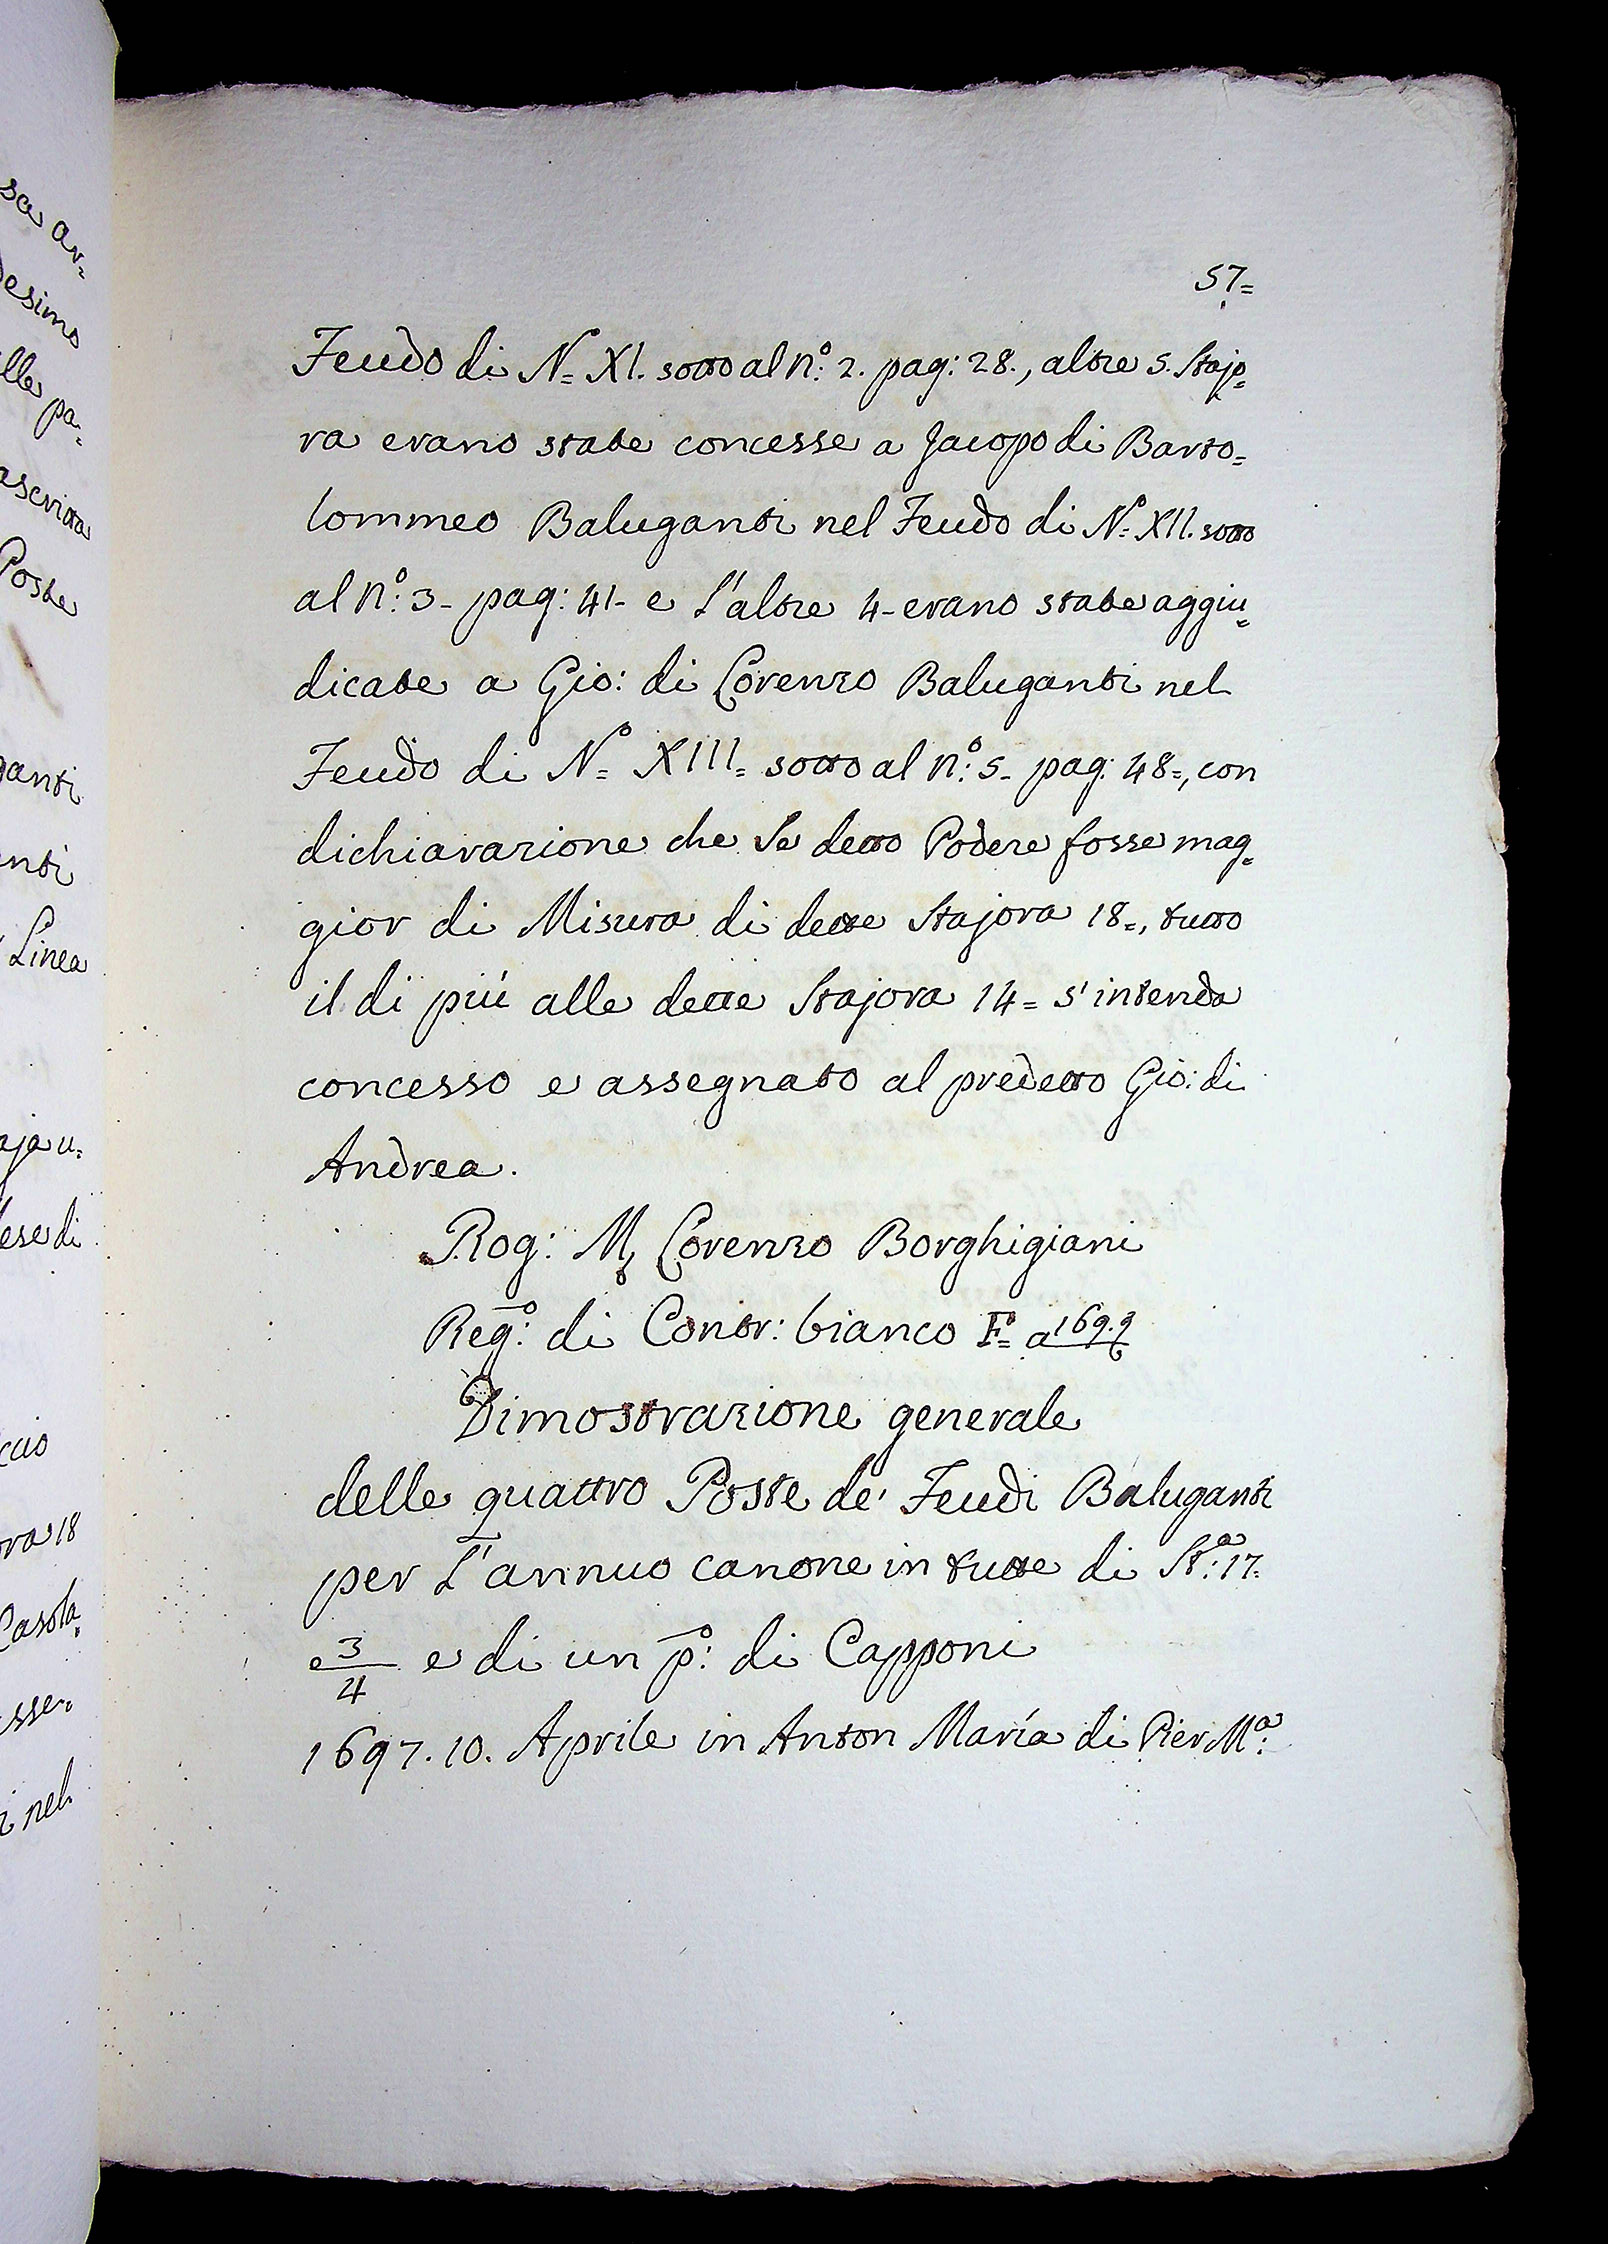 sa ar=
desimo
lle pa=
ascritta
Poste
ganti
nti
Linea
aja u=
ese di
ccio
ora 18
Casola=
sse=
i nel
57=
Feudo di N.º XI. sotto al n.º: 2. pag: 28., altre 5. Stajo=
ra erano state concesse a Jacopo di Barto=
lommeo Baluganti nel Feudo di N.º XII. sotto
al n.º: 3- pag: 41- e l'altre 4- erano state aggiu=
dicate a Gio: di Lorenzo Baluganti nel
Feudo di N.º XIII= sotto al n.º: 5- pag: 48=, con
dichiarazione che se detto Podere fosse mag=
gior di Misura di dette Stajora 18=, tutto
il di più alle dette Stajora 14= s'intenda
concesso e assegnato al predetto Gio: di
Andrea.
Rog: M, Lorenzo Borghigiani
Reg.º: di Contr: bianco F.º a 169.
Dimostrazione generale
delle quattro Poste de' Feudi Baluganti
per L'annuo canone in tutte di St.ª: 17=
e 3/4 e di un p.º: di Capponi
1697. 10. Aprile in Anton María di Pier M.ª: